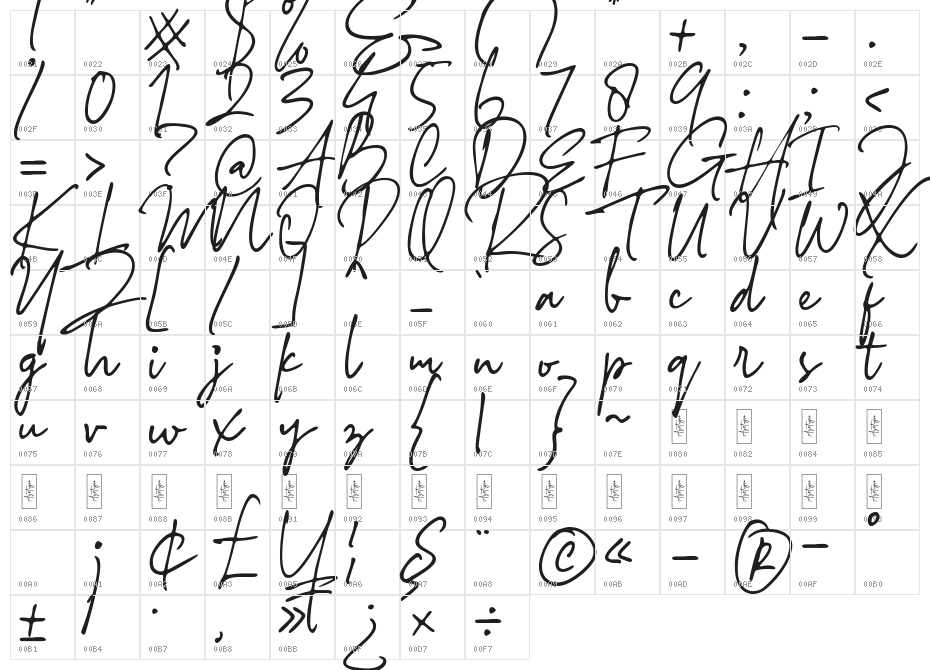 ! " # $ % & ' ( ) * + , - .
0021 0022 0023 0024 0025 0026 0027 0028 0029 002A 002B 002C 002D 002E
/ 0 1 2 3 4 5 6 7 8 9 : ; <
002F 0030 0031 0032 0033 0034 0035 0036 0037 0038 0039 003A 003B 003C
= > ? @ A B C D E F G H I J
003D 003E 003F 0040 0041 0042 0043 0044 0045 0046 0047 0048 0049 004A
K L M N O P Q R S T U V W X
004B 004C 004D 004E 004F 0050 0051 0052 0053 0054 0055 0056 0057 0058
Y Z [ \ ] ^ _ ` a b c d e f
0059 005A 005B 005C 005D 005E 005F 0060 0061 0062 0063 0064 0065 0066
g h i j k l m n o p q r s t
0067 0068 0069 006A 006B 006C 006D 006E 006F 0070 0071 0072 0073 0074
u v w x y z { | } ~
0075 0076 0077 0078 0079 007A 007B 007C 007D 007E 0080 0082 0084 0085
0086 0087 0088 008B 0091 0092 0093 0094 0095 0096 0097 0098 0099 009B
¡ ¢ £ ¥ ¦ § ¨ © « - ® ¯ °
00A0 00A1 00A2 00A3 00A5 00A6 00A7 00A8 00A9 00AB 00AD 00AE 00AF 00B0
± ´ · ¸ » ¿ × ÷
00B1 00B4 00B7 00B8 00BB 00BF 00D7 00F7